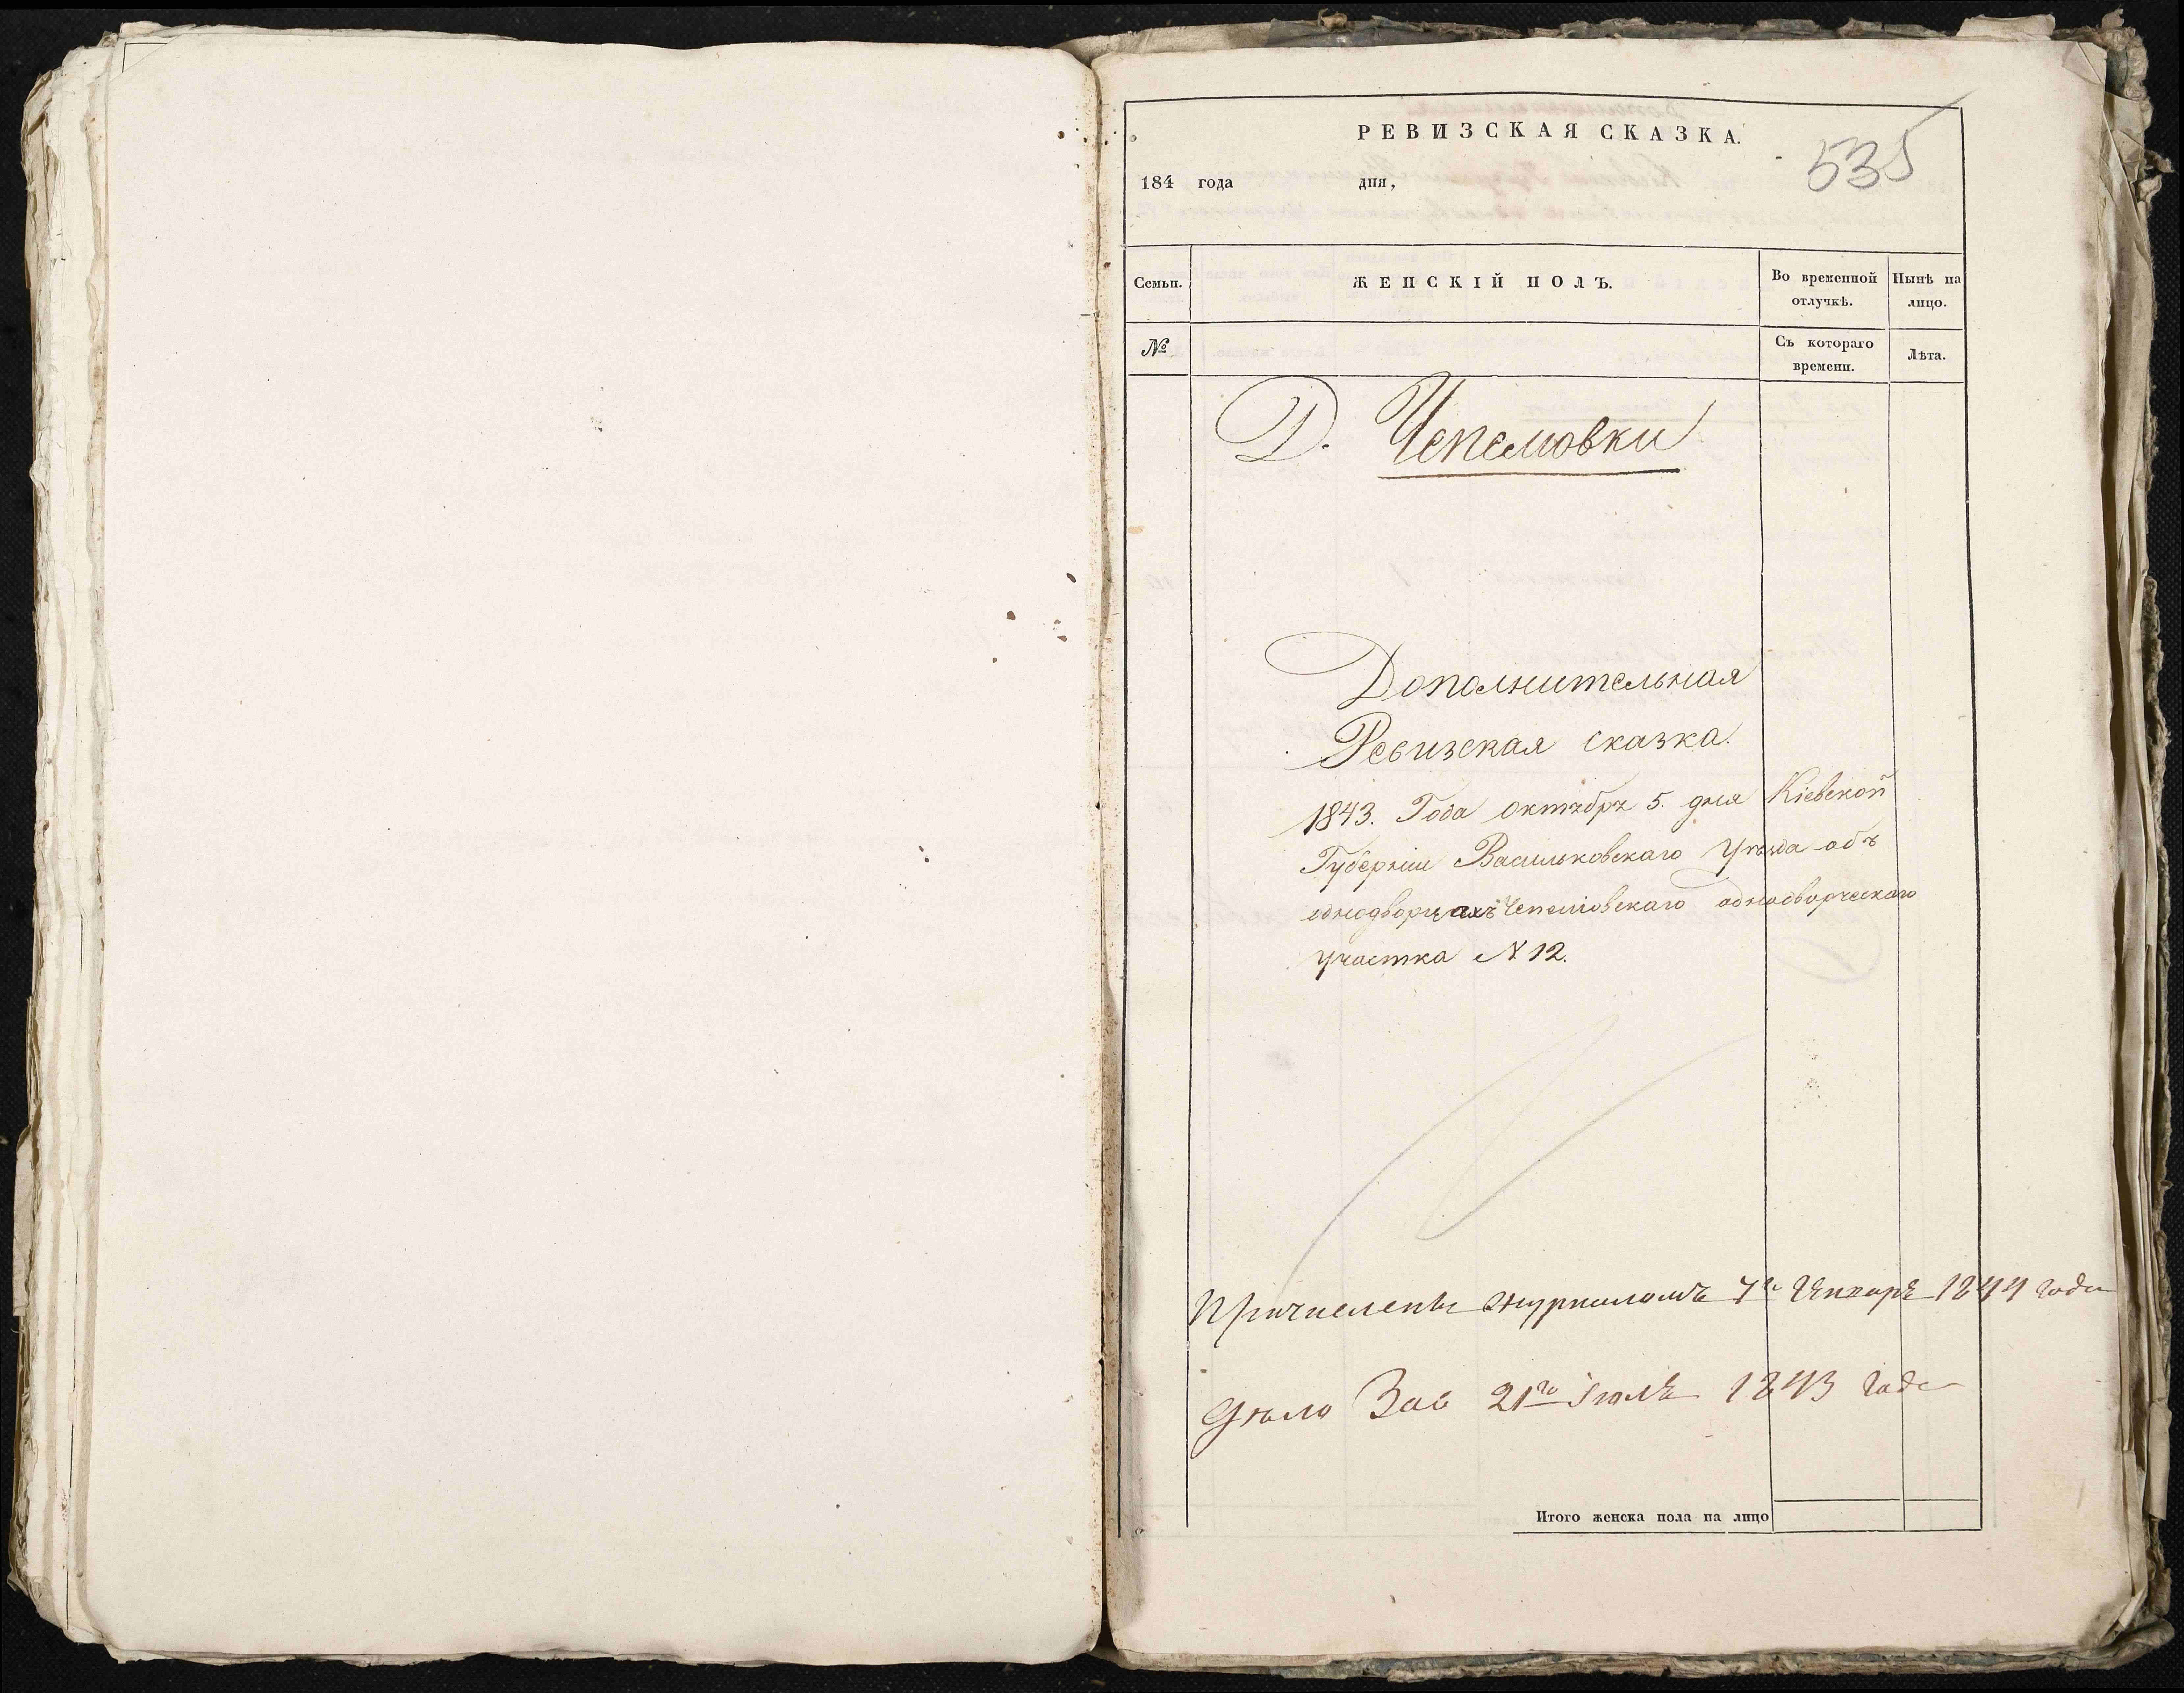 РЕВИЗСКАЯ СКАЗКА.
535
184 года дня,
Семьи. ЖЕНСКІЙ ПОЛЪ. Во временной отлучкѣ. Нынѣ на лицо.
№ Съ котораго времени. Лѣта.
Д. Чепелиовки
Дополнительная
Ревизская сказка.
1843. Года октября 5. дня Кіевской
Губерніи Васильковскаго Уѣзда объ
однодворцахъ Чепеліовскаго однодворческаго
участка N 12.
Причислены журналомъ 7го Генваря 1844 года
дѣло 21го Іюля 1843 года
Итого женска пола на лицо